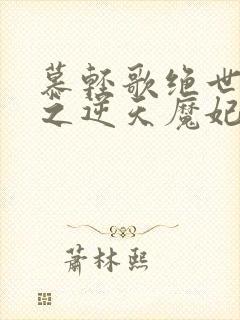 慕轻歌绝世
之逆天魔妃
萧林熙